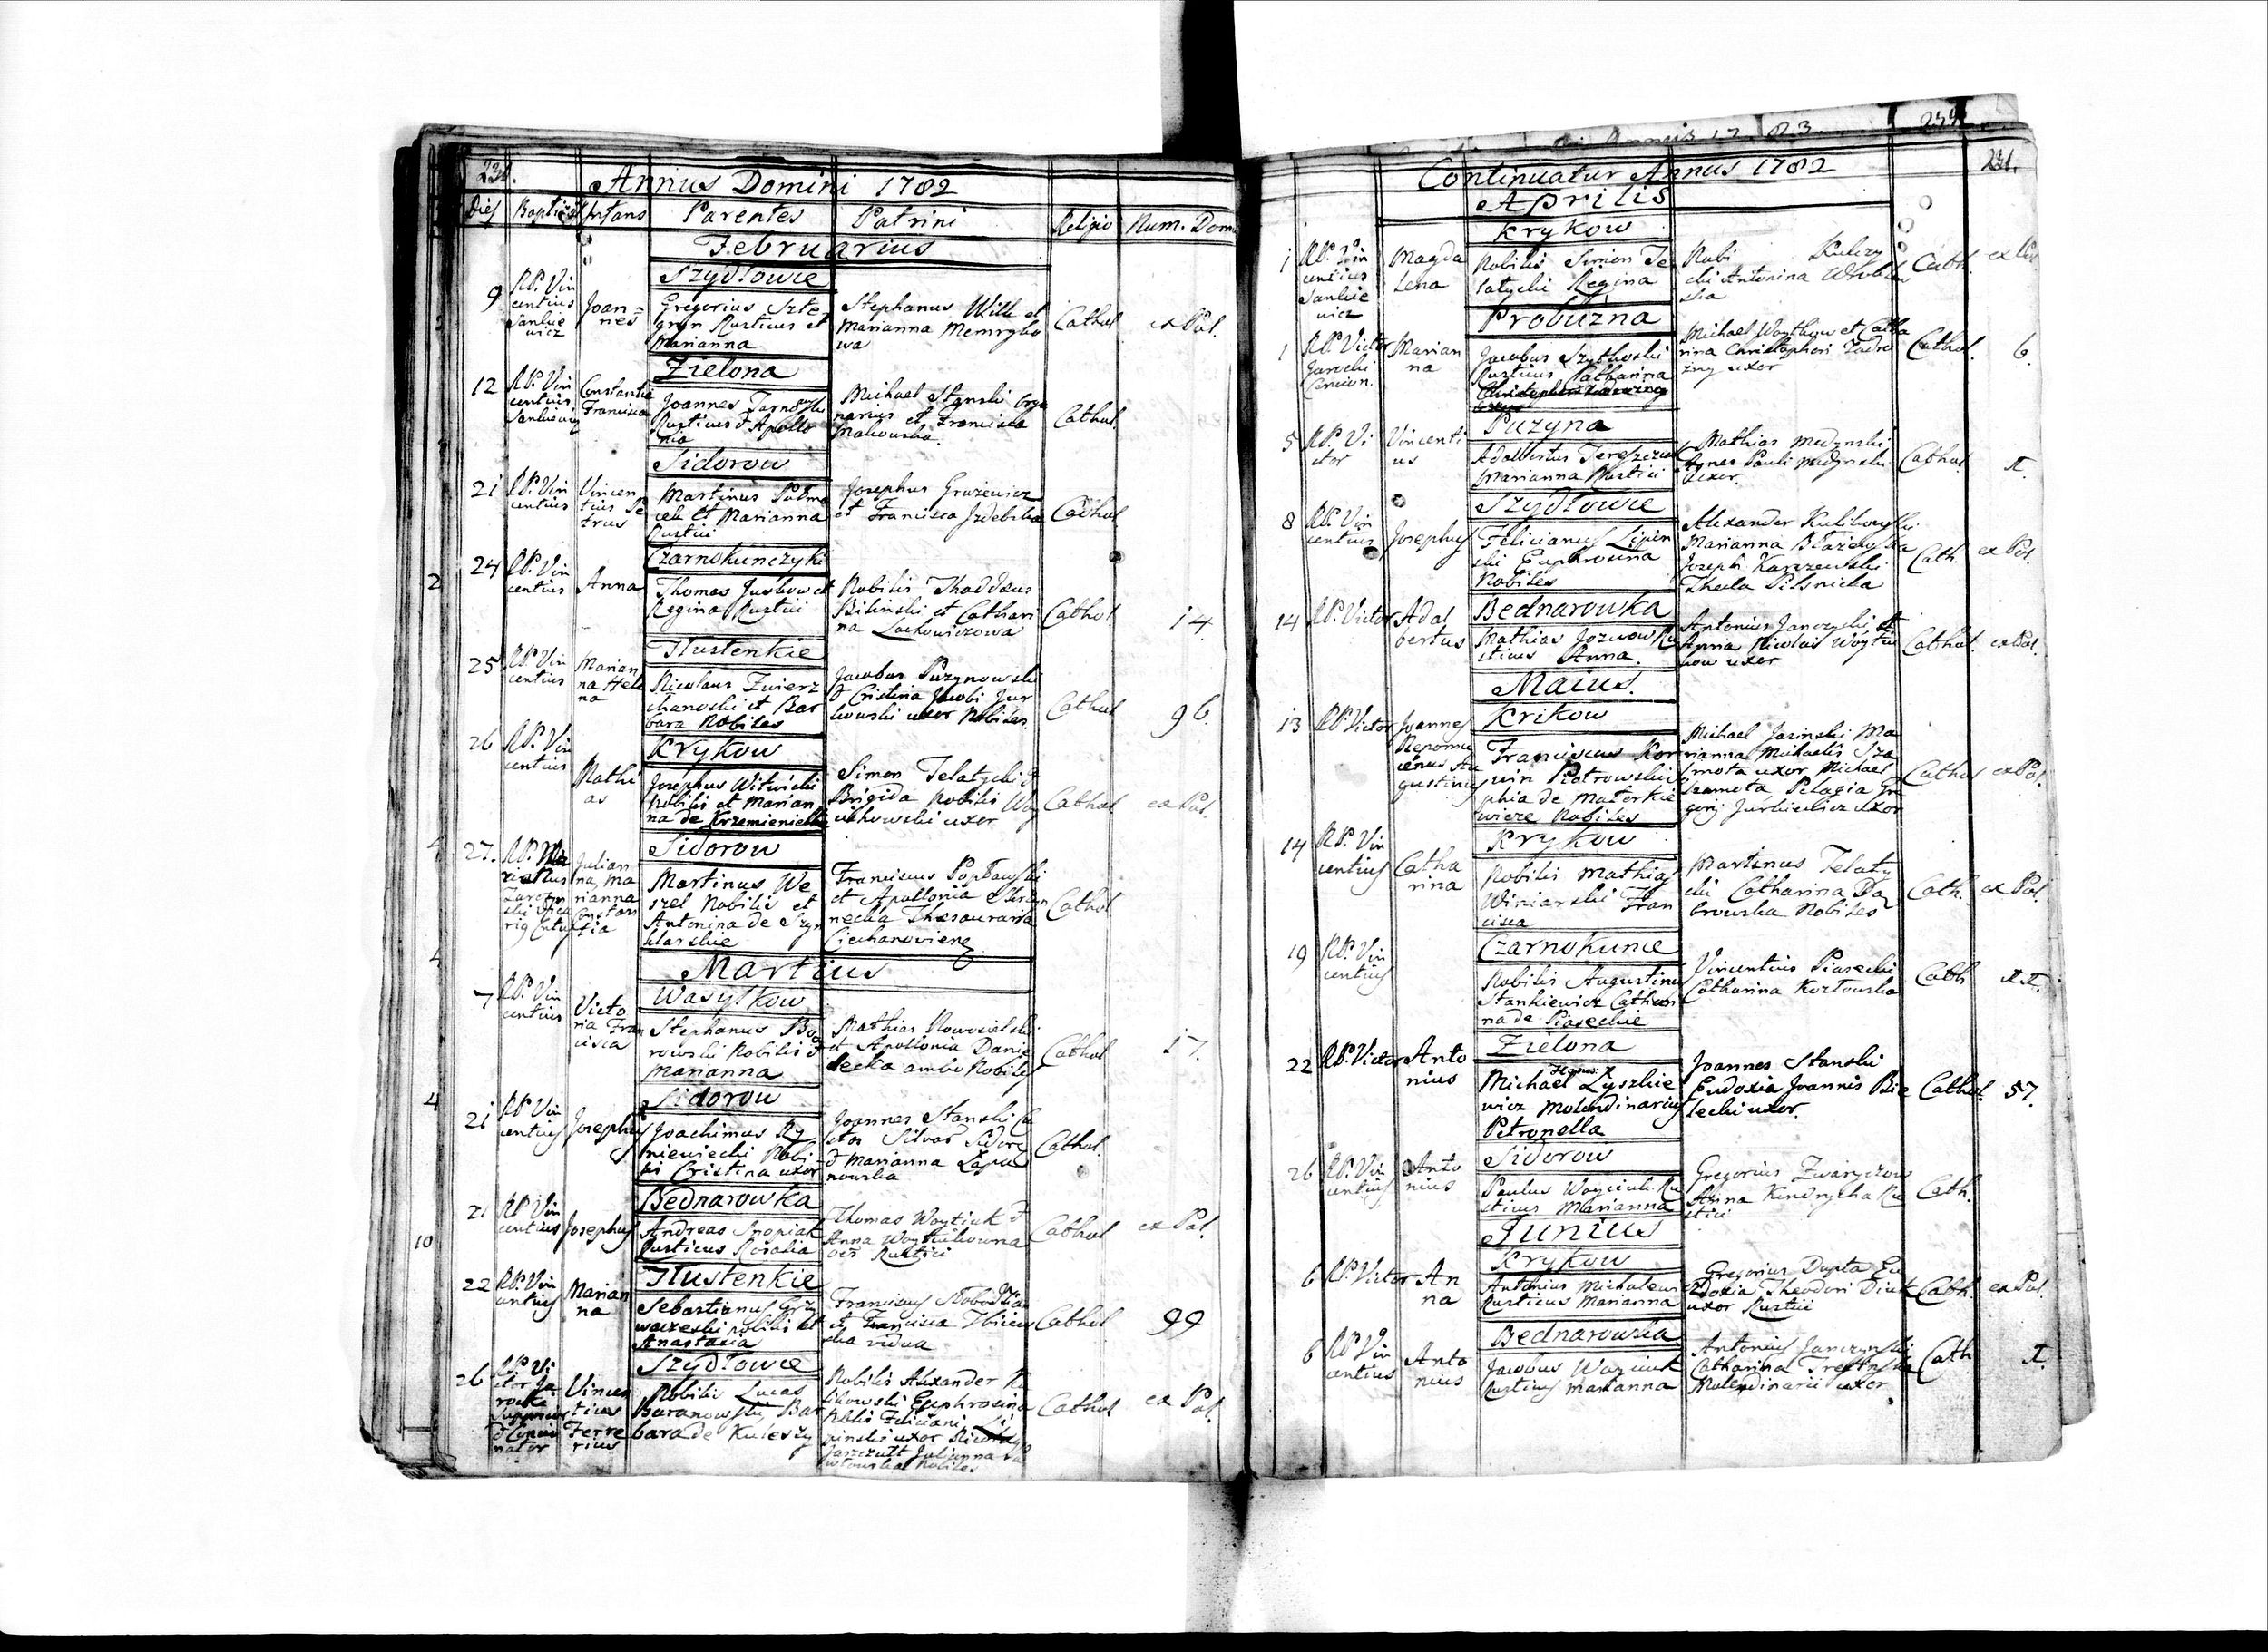 Annus Domini 1782
Dies Baptis Infans Parentes Patrini Religio Num. Dom
Februarius
Szydłowce
9 RP. Vin centius Sankie wicz
Joan= nes
Gregorius
Rusticus et
Marianna
Stephanus Wilk et
Marianna
wa
Cathol ex Pal.
Zielona
12 RP. Vin centius Sankiewicz
Constantia
Francisca
Joannes
Rusticus & Apollo
nia
Michael Stanski orga
narius et Francisca
Makowska.
Cathol.
Sidorow
21 RP. Vin centius
Vincen
tius Pe
trus
Martinus
et Marianna
Rustici
Josephus Gruzewicz
et Francisca Izdebska
Cathol
Czarnokunczyki
24 RP. Vin centius
Anna
Thomas Juskow et
Regina Rustici
Nobilis Thaddæus
Bilinski et Cathari
na Lachowiczowa
Cathol. 14
Tlustenkie
25 RP. Vin centius
Marian
na Hele
na
Nicolaus Zwierz
chanoski et Bar
bara Nobiles
Jacobus Puzynowski
& Cristina Jacobi Jur
kowski uxor Nobiles.
Cathol 96.
Krykow
26 RP. Vin centius
Mathi
as
Josephus Witwicki
Nobilis et Marian
na de Krzemienieckie
Simon Telatycki &
Brigida Nobilis Woy
uxor
Cathol ex Pal.
Sidorow
27.
Julian
na, Ma
rianna
Constan
tia
Martinus We
szel Nobilis et
Antonina de Szyn
klarskie
Franciscus Popławski
et Apollonia
Thesauraria
Ciechanoviene
Cathol
Martius
Wasylkow
7 RP. Vin centius
Victo
ria Fran
cisca
Stephanus Bo
rowski Nobilis &
Marianna
Mathias Nowosielski
et Apollonia Danie
lecka ambo Nobiles
Cathol 17.
Sidorow
21 RP. Vin centius
Josephus
Joachimus Ry
niewiecki Nobi
lis Cristina uxor
Joannes Stanski
Silvar Sidor
& Marianna Łapuc
nowska
Cathol.
Bednarowka
21 RP. Vin centius
Josephus
Andreas Snopiak
Rusticus Rosalia
Thomas Woytiuk &
Anna Woytiukowna
Rustici
Cathol ex Pal.
Tlustenkie
22 RP. Vin centius
Marian
na
Sebastianus Grzy
waczeski nobilis et
Anastasia
Franciscus
et Francisca
ska vidua
Cathol 99
Szydłowce
26 RP. Vi ctor
Vincen
tius
Ferre
rius
Nobilis Lucas
Baranowski, Bar
bara de Kuleszy
Nobilis Alexander Ku
likowski Euphrosina
Nobilis Feliciani Li
pinski uxor Nicolaus
Julianna
Nobiles
Cathol ex Pal.
Continuatur Annus 1782
231.
Aprilis
Krykow
1 RP. Vin centius Sankie wicz
Magda
lena
Nobilis Simon Te
latycki Regina
Nobi Kulczy
cki Antonina Wrobles
ska
Cath. ex Pal.
Probuzna
1 RP. Victor Jarocki Concion.
Marian
na
Jacobus Szytkowski
Rusticus Catharina
Michael Woytkow et Catha
rina Christophori Zadro
zny uxor
Cathol. 6.
Puzyna
5 RP. Vi ctor
Vincenti
us
Adalbertus Tereszczuk
Marianna Rustici
Mathias Medynski
Agnes Pauli Medynski
uxor.
Cathol
Szydłowce
8 RP. Vin centius
Josephus
Felicianus Lipin
ski Euphrosina
Nobiles
Alexander Kulikowski
Marianna Błażewska
Joseph Karczewski
Thecla Pilsnicka
Cath. ex Pal.
Bednarowka
14 RP. Victor
Adal
bertus
Mathias Ru
sticus Anna.
Antonius Janczycki et
Anna Nicolai Woytiu
kow uxor
Cathol. ex Pal.
Maius.
Krikow
13 RP. Victor
Joannes
Nepomu
cenus Au
gustinus
Franciscus Kor
win Piotrowski
phia de Materkie
wicze Nobiles
Michael Jasinski Ma
rianna Michaelis Sza
mota uxor Michael
Szamota Pelagia Gre
gorij Jurkiewicz uxor
Cathol ex Pal.
Krykow
14 RP. Vin centius
Catha
rina
Nobilis Mathias
Winiarski Fran
cisca
Martinus Telaty
cki Catharina Da
browska Nobiles
Cath. ex Pal.
Czarnokunce
19 RP. Vin centius
Nobilis Augustinus
Stankiewicz Cathari
na de Piaseckie
Vincentius Piasecki
Catharina Kozłowska
Cath
Zielona
22 RP. Victor
Anto
nius
Michael Lyszkie
wicz Molendinarius
Petronella
Joannes Stanski
Eudoxia Joannis Bie
lecki uxor.
Cathol. 57.
Sidorow
26 RP. Vin centius
Anto
nius
Paulus Woyciuk Ru
sticus Marianna
Gregorius Zwaryczow
Anna Kindrycka Ru
stici
Cath.
Junius
Krykow
6 RP. Victor
An
na
Antonius Michalewicz
Rusticus Marianna
Gregorius Dupta Eu
doxia Theodori Diuk
uxor Rustici
Cath. ex Pal.
Bednarowka
6 RP. Vin centius
Anto
nius
Jacobus Woyciuk
Rusticus Marianna
Antonius Janczynski
Catharina
Molendinarii uxor
Cath